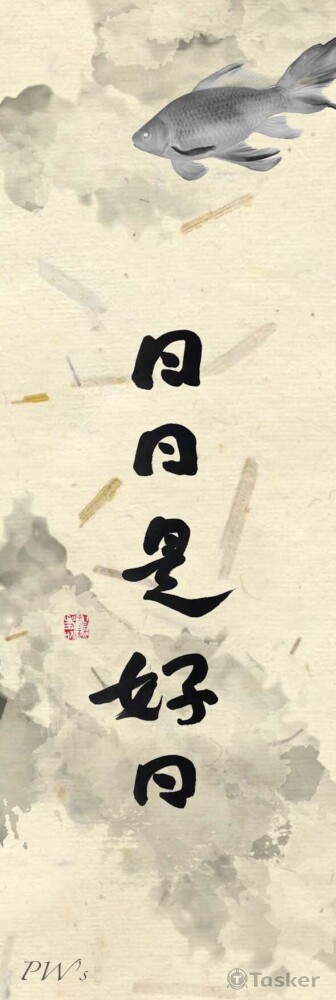 日日是好日
PW's
Tasker